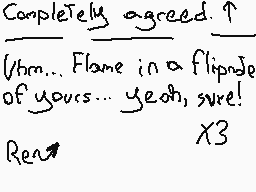 Completely agreed. ↑
Uhm... Flame in a flipnote
of yours... yeah, sure!
X3